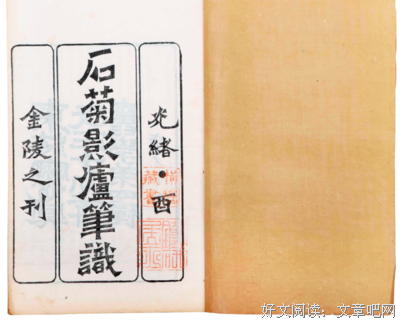 光緒·酉
石菊影廬筆識
金陵之刊
好文阅读：文章吧网